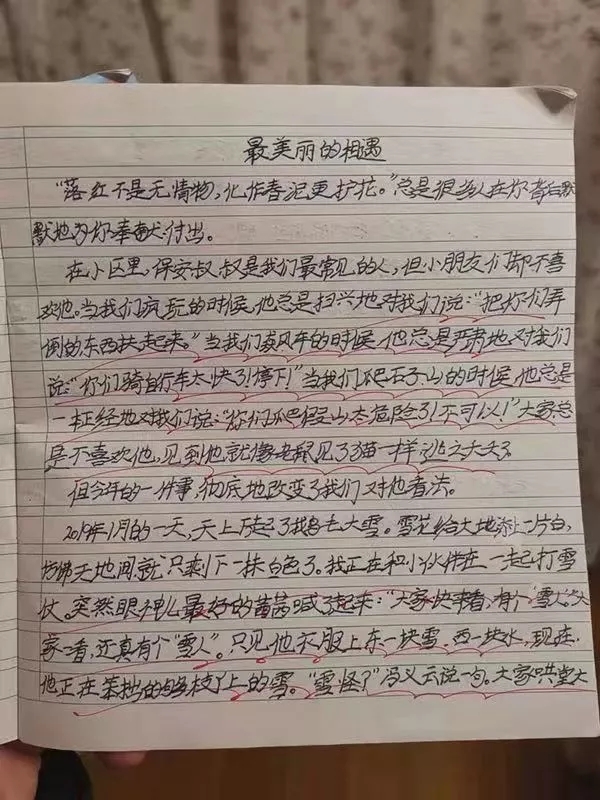 最美丽的相遇
“落红不是无情物,化作春泥更护花。”总是很多人在你背后默
默地为你奉献付出。
在小区里,保安叔叔是我们最常见的人,但小朋友们却不喜
欢他。当我们疯玩的时候,他总是扫兴地对我们说:“把你们弄
倒的东西扶起来。”当我们飙风车的时候,他总是严肃地对我们
说:“你们骑自行车太快了!停下!”当我们爬石子山的时候,他总是
一本正经地对我们说:“你们爬假山太危险了!不可以!”大家总
是不喜欢他,见到他就像老鼠见了猫一样逃之夭夭
但今年的一件事,彻底地改变了我们对他看法。
2019年1月的一天,天上下起了鹅毛大雪。雪花给大地添上一片白,
仿佛天地间就只剩下一抹白色了。我正在和小伙伴在一起打雪
仗。突然眼神儿最好的茜茜喊了起来:“大家快来看,有个“雪人”。大
家一看,还真有个“雪人”。只见他衣服上东一块雪,西一块水,现在,
他正在笨拙的够枝丫上的雪。“雪怪?”冯义云说一句。大家哄堂大